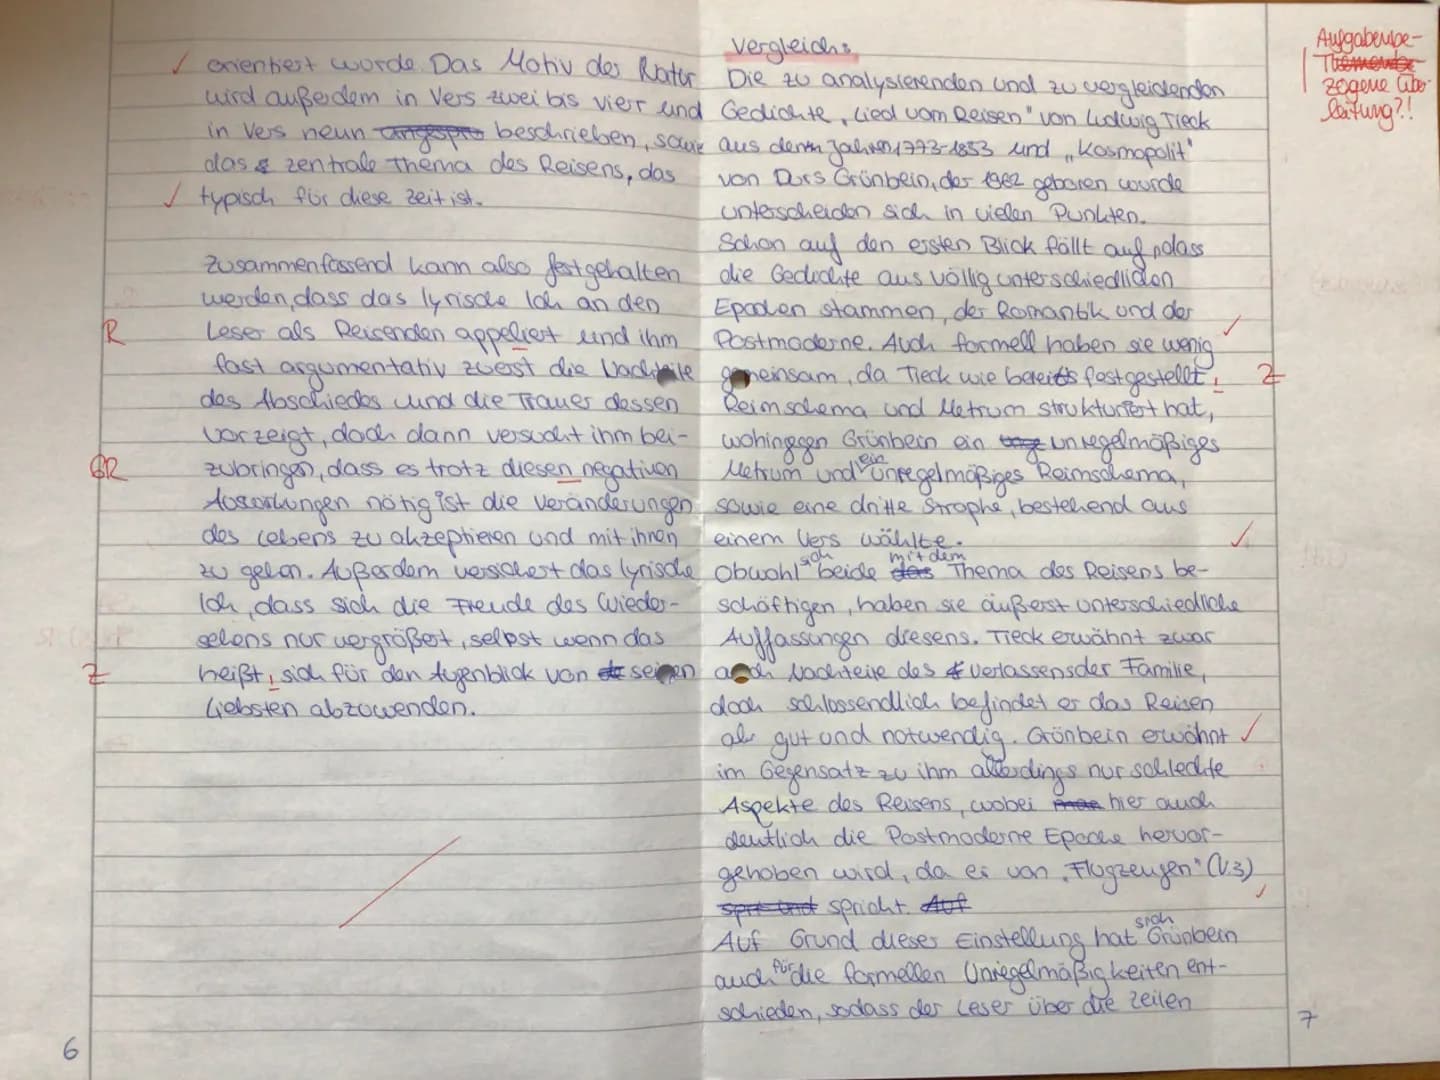 orientiert wurde. Das Motiv der Natur
wird außerdem in Vers zwei bis vier und
in Vers neun beschrieben, sowie
das zentrale Thema des Reisens, das
typisch für diese Zeit ist.
Zusammenfassend kann also festgehalten
werden, dass das lyrische Ich an den
R
Leser als Reisenden appeliert und ihm
fast argumentativ zuerst die Nachteile
des Abschiedes und die Trauer dessen
vorzeigt, doch dann versucht ihm bei-
GR
zubringen, dass es trotz diesen negativen
Auswirkungen nötig ist die Veränderungen
des Lebens zu akzeptieren und mit ihnen
zu gehen. Außerdem versichert das lyrische
Ich, dass sich die Freude des Wieder-
sehens nur vergrößert, selbst wenn das
Z
heißt, sich für den Augenblick von seinen
Liebsten abzuwenden.
6
Vergleich:
Die zu analysierenden und zu vergleichenden
Gedichte „Lied vom Reisen" von Ludwig Tieck
aus den Jahren 1773-1853 und „Kosmopolit"
von Durs Grünbein, der 1962 geboren wurde
unterscheiden sich in vielen Punkten.
Schon auf den ersten Blick fällt auf, dass
die Gedichte aus völlig unterschiedlichen
Epochen stammen, der Romantik und der
Postmoderne. Auch formell haben sie wenig
gemeinsam, da Tieck wie bereits festgestellt,
Z
Reimschema und Metrum strukturiert hat,
wohingegen Grünbein ein unregelmäßiges
Metrum und ein unregelmäßiges Reimschema,
sowie eine dritte Strophe, bestehend aus
einem Vers wählte.
Obwohl sich beide mit dem Thema des Reisens be-
schäftigen, haben sie äußerst unterschiedliche
Auffassungen diesens. Tieck erwähnt zwar
auch Nachteile des Verlassens der Familie,
doch schlossendlich befindet er das Reisen
als gut und notwendig. Grünbein erwähnt
im Gegensatz zu ihm allerdings nur schlechte
Aspekte des Reisens, wobei hier auch
deutlich die Postmoderne Epoche hervor-
gehoben wird, da er von „Flugzeugen" (V.3)
spricht.
Auf Grund dieser Einstellung hat sich Grünbein
auch für die formellen Unregelmäßigkeiten ent-
schieden, sodass der Leser über die Zeilen
7
Aufgabenbe-
zogene Über-
leitung?!